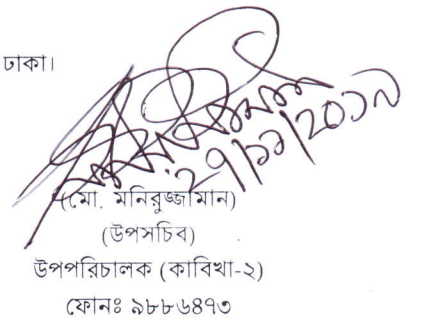 ঢাকা।
২৭/১১/২০১৭
(মো. মনিরুজ্জামান)
(উপসচিব)
উপপরিচালক (কাবিখা-২)
ফোনঃ ৯৮৮৬৪৭৩